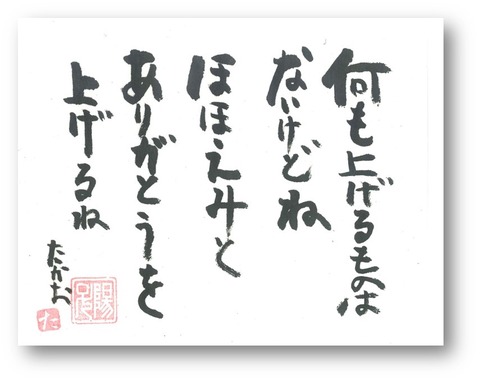 何も上げるものは
ないけどね
ほほえみと
ありがとうを
上げるね
たかお
た